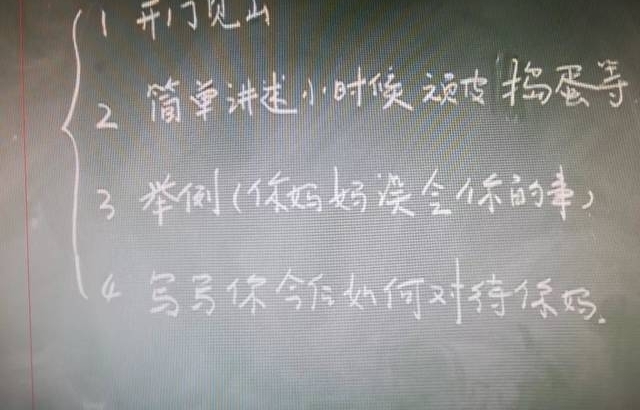 1 开门见山
2 简单讲述小时候顽皮捣蛋等
3 举例(你妈妈误会你的事)
4 写写你今后如何对待你妈.